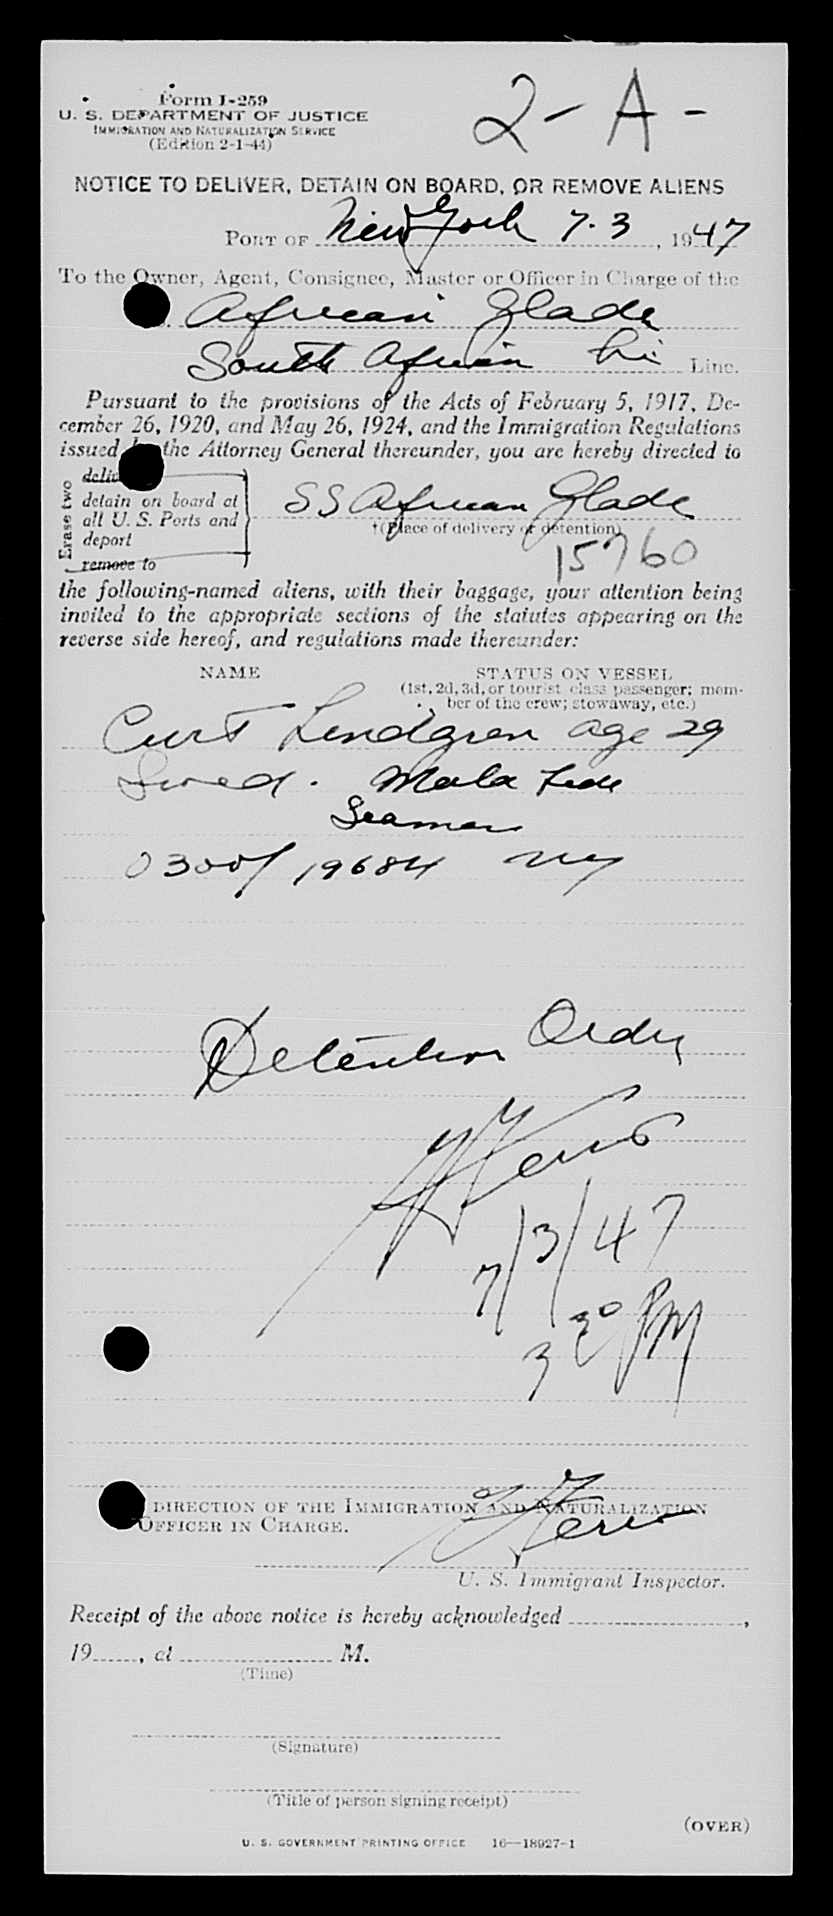 Form I-259
U. S. DEPARTMENT OF JUSTICE
IMMIGRATION AND NATURALIZATION SERVICE
(Edition 2-1-44)
2-A-
NOTICE TO DELIVER, DETAIN ON BOARD, OR REMOVE ALIENS
PORT OF New York 7.3, 1947
To the Owner, Agent, Consignee, Master or Officer in Charge of the
African Glade
South African Line.
Pursuant to the provisions of the Acts of February 5, 1917, De-
cember 26, 1920, and May 26, 1924, and the Immigration Regulations
issued by the Attorney General thereunder, you are hereby directed to
Erase two
deliver
detain on board at
all U. S. Ports and
deport
remove to
SS African Glade
†(Place of delivery or detention)
15760
the following-named aliens, with their baggage, your attention being
invited to the appropriate sections of the statutes appearing on the
reverse side hereof, and regulations made thereunder:
NAME
STATUS ON VESSEL
(1st, 2d, 3d, or tourist class passenger; mem-
ber of the crew; stowaway, etc.)
Curt Lendgren age 29
Swed. Mala Fide
Seaman
0300/19684 NY
Detention Order
7/3/47
3 30 PM
DIRECTION OF THE IMMIGRATION AND NATURALIZATION
OFFICER IN CHARGE.
U. S. Immigrant Inspector.
Receipt of the above notice is hereby acknowledged ,
19 , at M.
(Time)
(Signature)
(Title of person signing receipt)
(OVER)
U. S. GOVERNMENT PRINTING OFFICE 16—18927-1